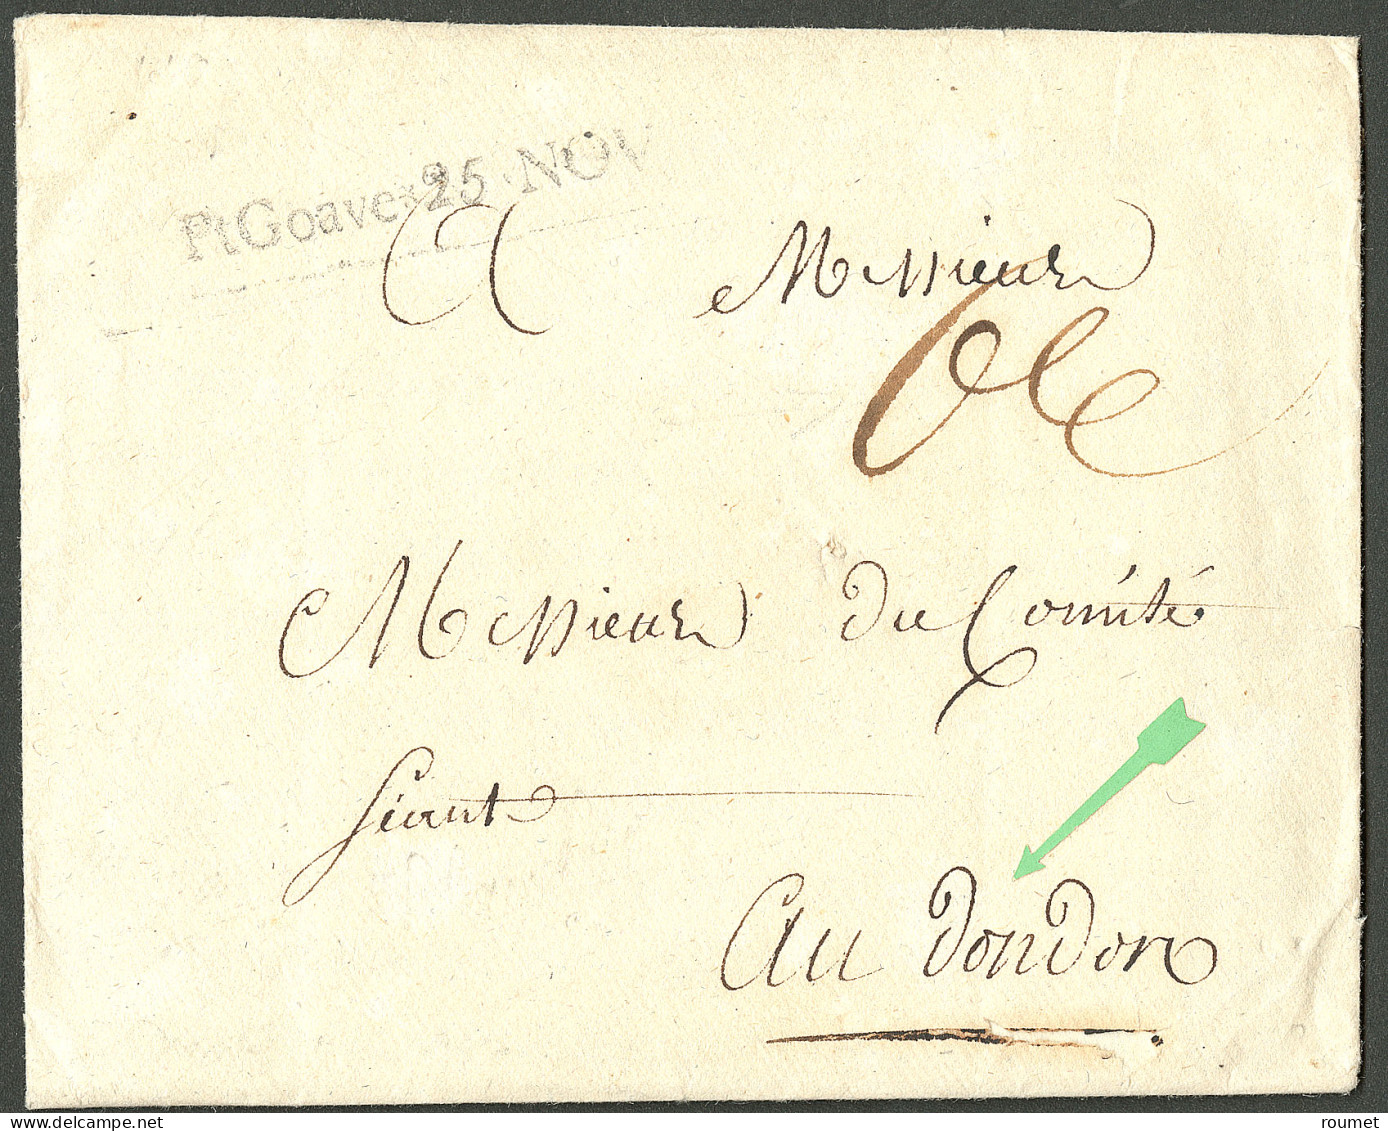 PtGoave 25 NOV
A Messieurs
Messieurs du Comité
séant
Au dondon
roumet